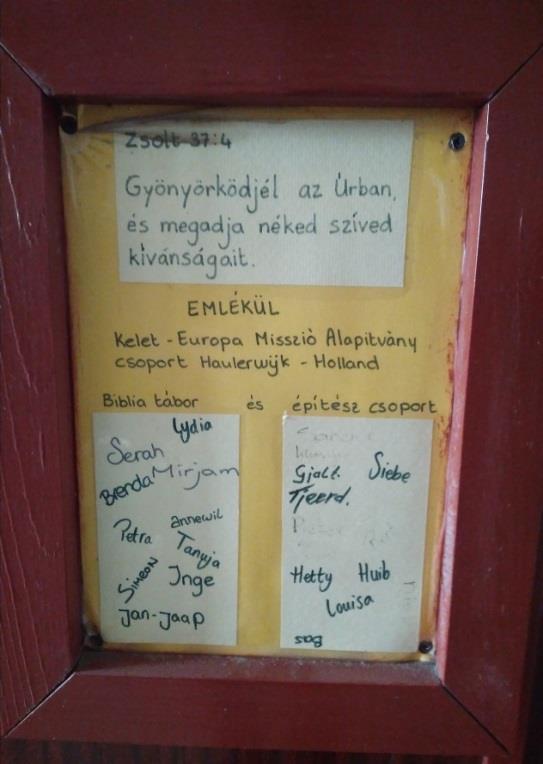 Zsolt 37:4
Gyönyörködjél az Úrban,
és megadja néked szíved
kívánságait.
EMLÉKÜL
Kelet - Europa Misszió Alapítvány
csoport Haulerwijk - Holland
Biblia tábor és építész csoport
Lydia
Serah
Mirjam
Brenda
annewil
Petra
Tanyja
Simeon
Inge
Jan-Jaap
Gjalt.
Siebe
Tjeerd.
Hetty Huib
Louisa
Bas